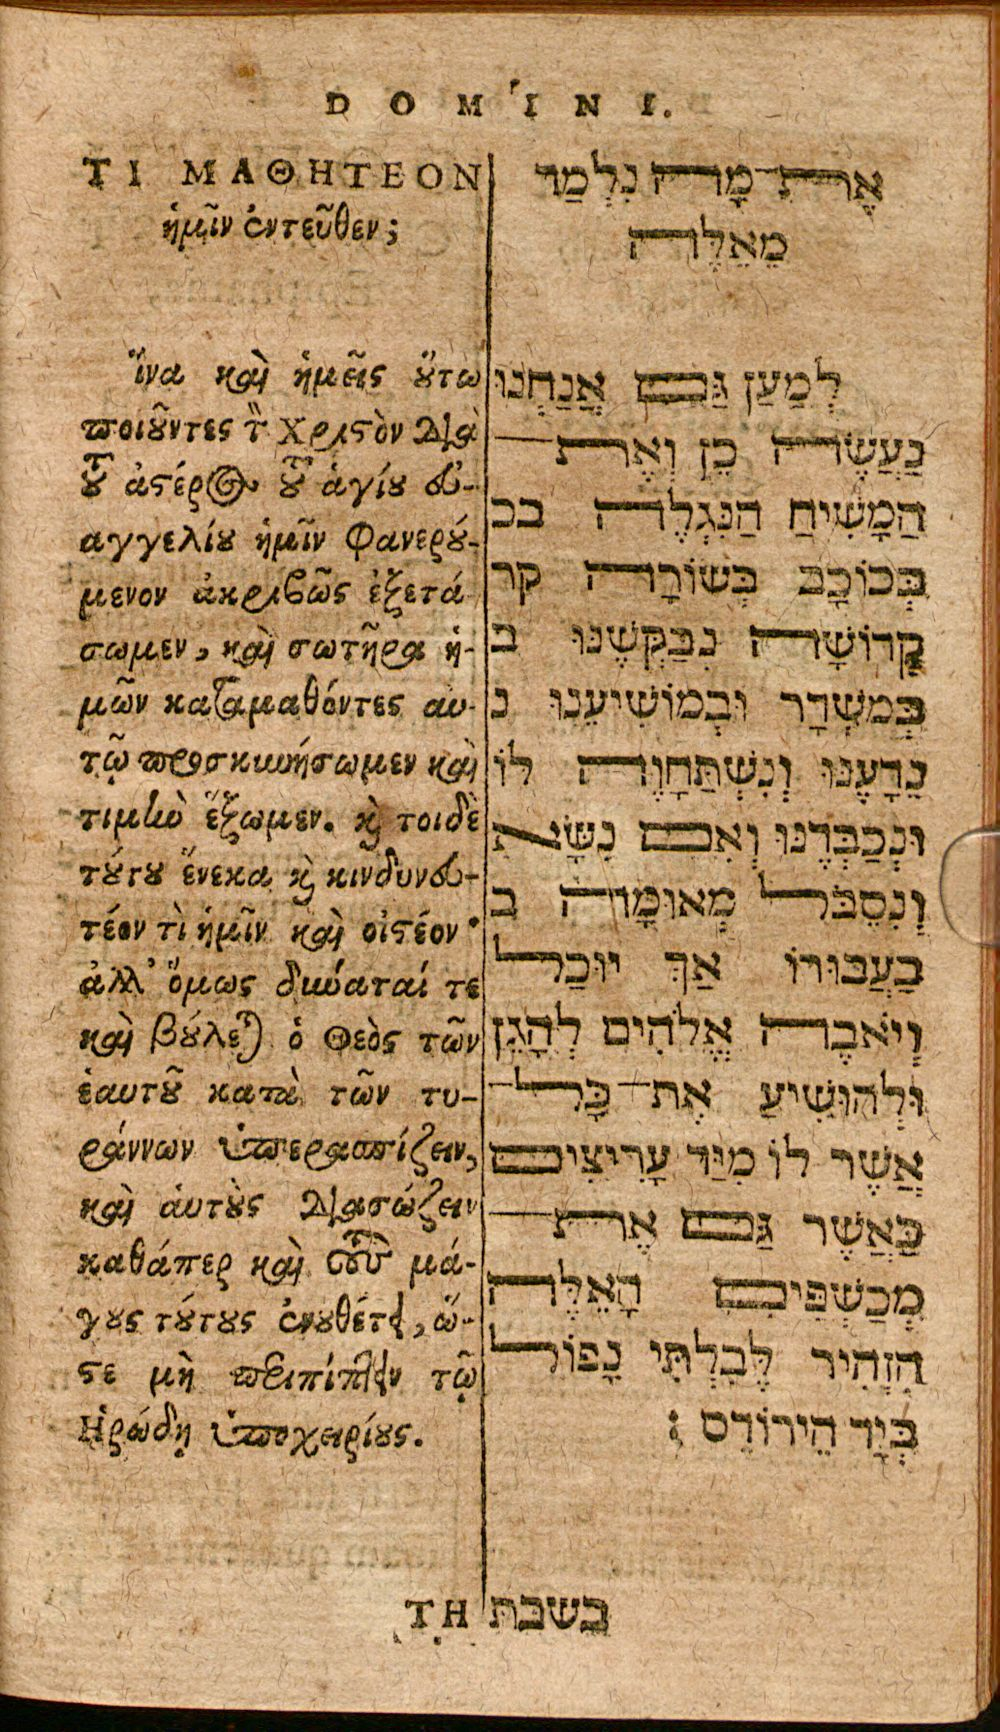 DOMINI.
ΤΙ ΜΑΘΗΤΕΟΝ
ἡμῖν ἐντεῦθεν;
ἵνα καὶ ἡμεῖς ὅυτω
ποιοῦντες τὸν Χριστὸν διὰ
τοῦ ἀστέρος τοῦ ἁγίου ἐυ-
αγγελίου ἡμῖν φανερού-
μενον ἀκριβῶς ἐξετά
σωμεν, καὶ σωτῆρα ἡ-
μῶν καταμαθόντες αυ-
τῷ προσκυνήσωμεν καὶ
τιμὴν ἕξωμεν. καὶ τοιδὲ
τούτου ἕνεκα καὶ κινδυνευ-
τέον τὶ ἡμῖν καὶ οἰστέον·
ἀλλ' ὅμως δύναταί τε
καὶ βούλεται ὁ Θεὸς τῶν
ἑαυτοῦ κατὰ τῶν τυ-
ράννων ὑπερασπίζειν,
καὶ ἀυτοὺς διασώζειν
καθάπερ καὶ τοὺς μά-
γους τούτους ἐνουθέτει, ὥ-
στε μὴ περιπίπτειν τῷ
Ἡρώδῃ ὑποχειρίους.
ΤΗ
אֶת־ מָה נִלְמַד
מֵאֵלֶּה
לְמַעַן גַּם אֲנַחְנוּ
נַעֲשֶׂה כֵן וְאֶת־
הַמָּשִׁיחַ הַנִּגְלֶה בכ
בְּכוֹכָב בְּשׂוֹרָה קד
קְדוֹשָׁה נְבַקְשֶׁנּוּ ב
בְּמִשְׁדָר וּבְמוֹשִׁיעֵנוּ נ
נֵדָעֶנּוּ וְנִשְׁתַּחֲוֶה לוֹ
וּנְכַבְּדֶנּוּ וְאִם נִשָּׂא
וְנִסְבֹּל מְאוּמָה ב
בַּעֲבוּרוֹ אַךְ יוּכַל
וְיֹאבֶה אֱלֹהִים לְהָגֵן
וּלְהוֹשִׁיעַ אֶת־ כָּל־
אֲשֶׁר לוֹ מִיַּד עָרִיצִים
כַּאֲשֶׁר גַּם אֶת־
מְכַשְּׁפִים הָאֵלֶּה
הִזְהִיר לְבִלְתִּי נְפוֹל
בְּיַד הֵירוֹדֵס :
בשבת